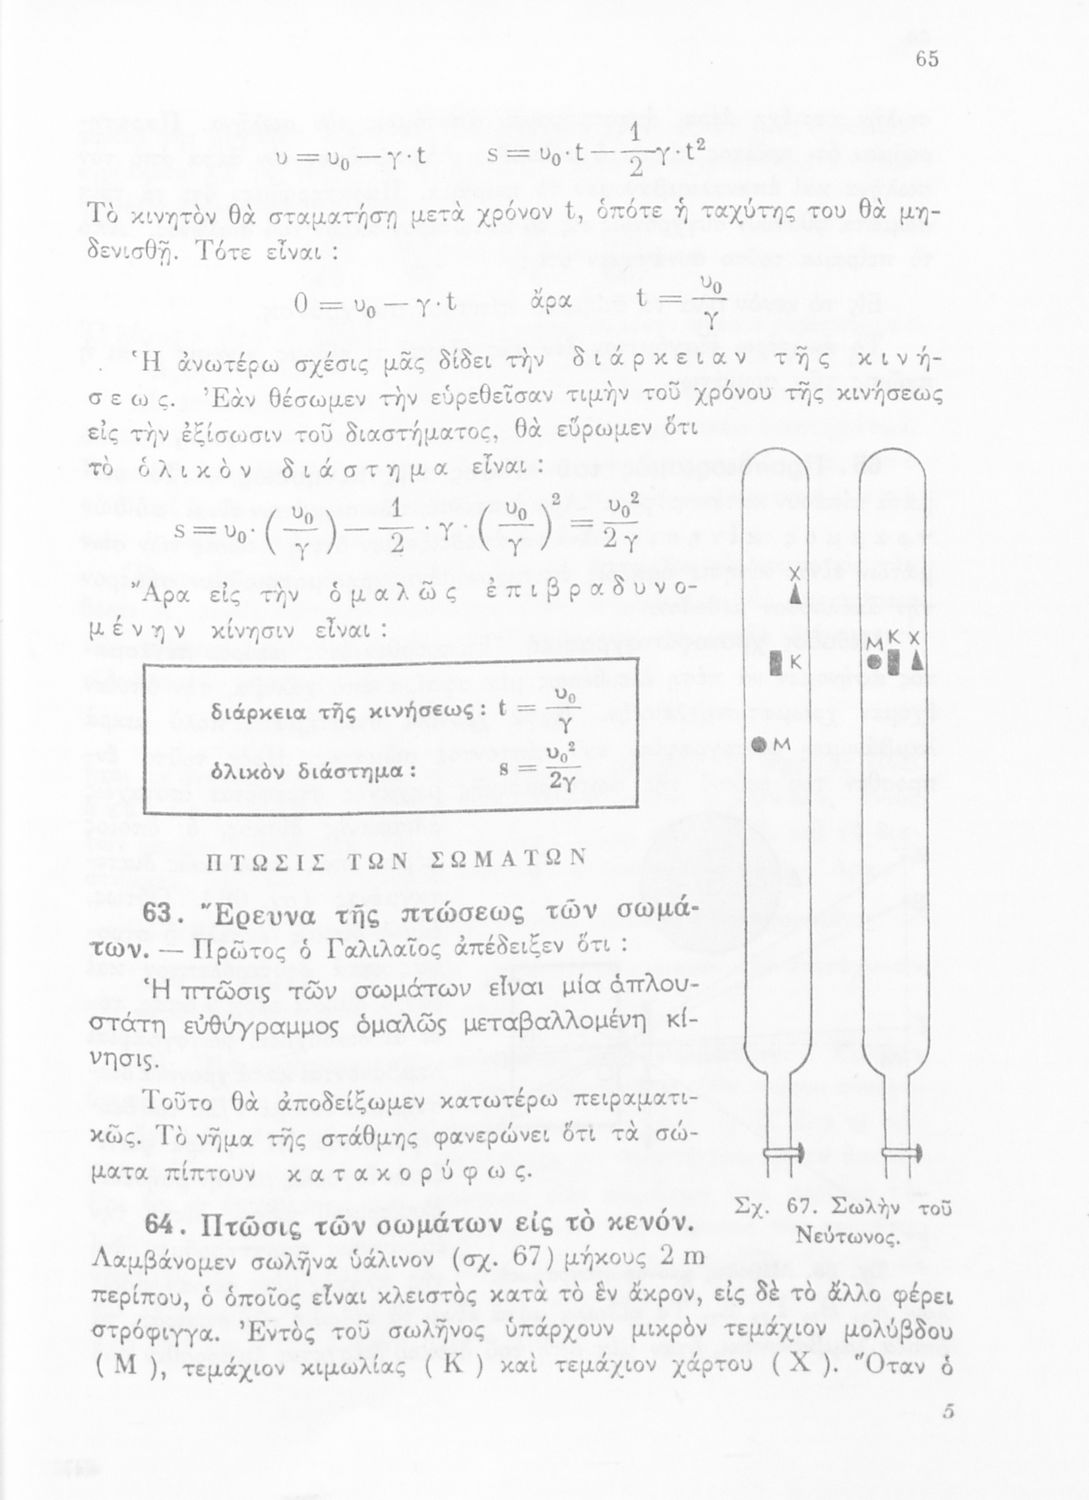 65
υ = υ₀ — γ·t    s = υ₀·t — 1/2 γ·t²
Τὸ κινητὸν θὰ σταματήσῃ μετὰ χρόνον t, ὁπότε ἡ ταχύτης του θὰ μη-
δενισθῇ. Τότε εἶναι :
0 = υ₀ — γ·t    ἄρα    t = υ₀/γ
Ἡ ἀνωτέρω σχέσις μᾶς δίδει τὴν διάρκειαν τῆς κινή-
σεως. Ἐὰν θέσωμεν τὴν εὑρεθεῖσαν τιμὴν τοῦ χρόνου τῆς κινήσεως
εἰς τὴν ἐξίσωσιν τοῦ διαστήματος, θὰ εὕρωμεν ὅτι
τὸ ὁλικὸν διάστημα εἶναι :
s = υ₀· ( υ₀/γ ) — 1/2 · γ · ( υ₀/γ )² = υ₀²/2γ
Ἄρα εἰς τὴν ὁμαλῶς ἐπιβραδυνο-
μένην κίνησιν εἶναι :
διάρκεια τῆς κινήσεως : t = υ₀/γ
ὁλικὸν διάστημα : s = υ₀²/2γ
ΠΤΩΣΙΣ ΤΩΝ ΣΩΜΑΤΩΝ
63. Ἔρευνα τῆς πτώσεως τῶν σωμά-
των. — Πρῶτος ὁ Γαλιλαῖος ἀπέδειξεν ὅτι :
Ἡ πτῶσις τῶν σωμάτων εἶναι μία ἁπλου-
στάτη εὐθύγραμμος ὁμαλῶς μεταβαλλομένη κί-
νησις.
Τοῦτο θὰ ἀποδείξωμεν κατωτέρω πειραματι-
κῶς. Τὸ νῆμα τῆς στάθμης φανερώνει ὅτι τὰ σώ-
ματα πίπτουν κατακορύφως.
64. Πτῶσις τῶν σωμάτων εἰς τὸ κενόν.
Λαμβάνομεν σωλῆνα ὑάλινον (σχ. 67) μήκους 2 m
περίπου, ὁ ὁποῖος εἶναι κλειστὸς κατὰ τὸ ἓν ἄκρον, εἰς δὲ τὸ ἄλλο φέρει
στρόφιγγα. Ἐντὸς τοῦ σωλῆνος ὑπάρχουν μικρὸν τεμάχιον μολύβδου
( Μ ), τεμάχιον κιμωλίας ( Κ ) καὶ τεμάχιον χάρτου ( Χ ). Ὅταν ὁ
Χ
Κ
Μ
Μ Κ Χ
Σχ. 67. Σωλὴν τοῦ
Νεύτωνος.
5